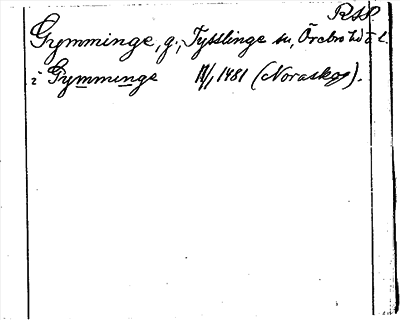 RSP
Gymminge, g., Tysslinge sn, Örebro hd ö l.
i Gymminge 17/1 1481 (Noraskog).